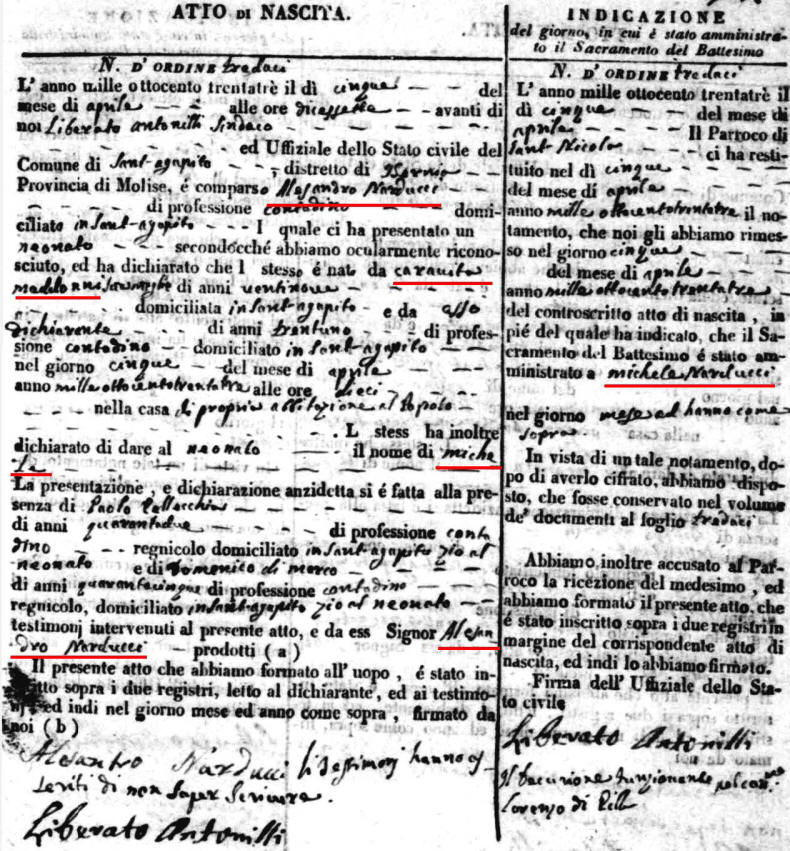 ATTO DI NASCITA.
N. D'ORDINE tredaci
L' anno mille ottocento trentatrè il dì cinque del
mese di aprile alle ore diciassetta avanti di
noi Liberato Antonilli Sindaco
ed Uffiziale dello Stato civile del
Comune di Sant-agapito distretto di Isernia
Provincia di Molise, é comparso Alesandro Narducci
di professione contadino domi-
ciliato in Sant-agapito I quale ci ha presentato un
neonato secondocché abbiamo ocularmente ricono-
sciuto, ed ha dichiarato che l stesso é nato da
di anni ventinove
domiciliata in Sant-agapito e da esso
dichiarante di anni trentuno di profes-
sione contadino domiciliato in Sant-agapito
nel giorno cinque del mese di aprile
anno mille ottocentotrentatre alle ore dieci
nella casa di propria abitazione al
L stess ha inoltre
dichiarato di dare al neonato il nome di miche
le
La presentazione, e dichiarazione anzidetta si é fatta alla pre-
senza di Paolo
di anni quarantadue di professione conta
dino regnicolo domiciliato in Sant-agapito zio al
neonato e di Domenico di marco
di anni quarantacinque di professione contadino
regnicolo, domiciliato in Sant-agapito zio al neonato
testimonj intervenuti al presente atto, e da ess Signor Alesan
dro Narducci prodotti (a)
Il presente atto che abbiamo formato all' uopo, é stato in-
itto sopra i due registri, letto al dichiarante, ed ai testimo-
nj, ed indi nel giorno mese ed anno come sopra, firmato da
noi (b)
Alesantro Narducci li Testimonj hanno as-
seriti di non saper scrivere.
Liberato Antonilli
INDICAZIONE
del giorno, in cui é stato amministra-
to il Sacramento del Battesimo
N. D'ORDINE tredaci
L' anno mille ottocento trentatrè il
dì cinque del mese di
aprile Il Parroco di
Sant Nicola ci ha resti-
tuito nel dì cinque
del mese di aprile
anno mille ottocentotrentatre il no-
tamento, che noi gli abbiamo rimes-
so nel giorno cinque
del mese di aprile
anno mille ottocentotrentatre
del controscritto atto di nascita, in
pié del quale ha indicato, che il Sa-
cramento del Battesimo é stato am-
ministrato a michele Narducci
nel giorno mese ed hanno come
sopra
In vista di un tale notamento, do-
po di averlo cifrato, abbiamo dispo-
sto, che fosse conservato nel volume
de' documenti al foglio tredaci
Abbiamo inoltre accusato al Par-
roco la ricezione del medesimo, ed
abbiamo formato il presente atto, che
é stato inscritto sopra i due registri in
margine del corrispondente atto di
nascita, ed indi lo abbiamo firmato.
Firma dell' Uffiziale dello Sta-
to civile
Liberato Antonilli
Il Decurione funzionante
Lorenzo di